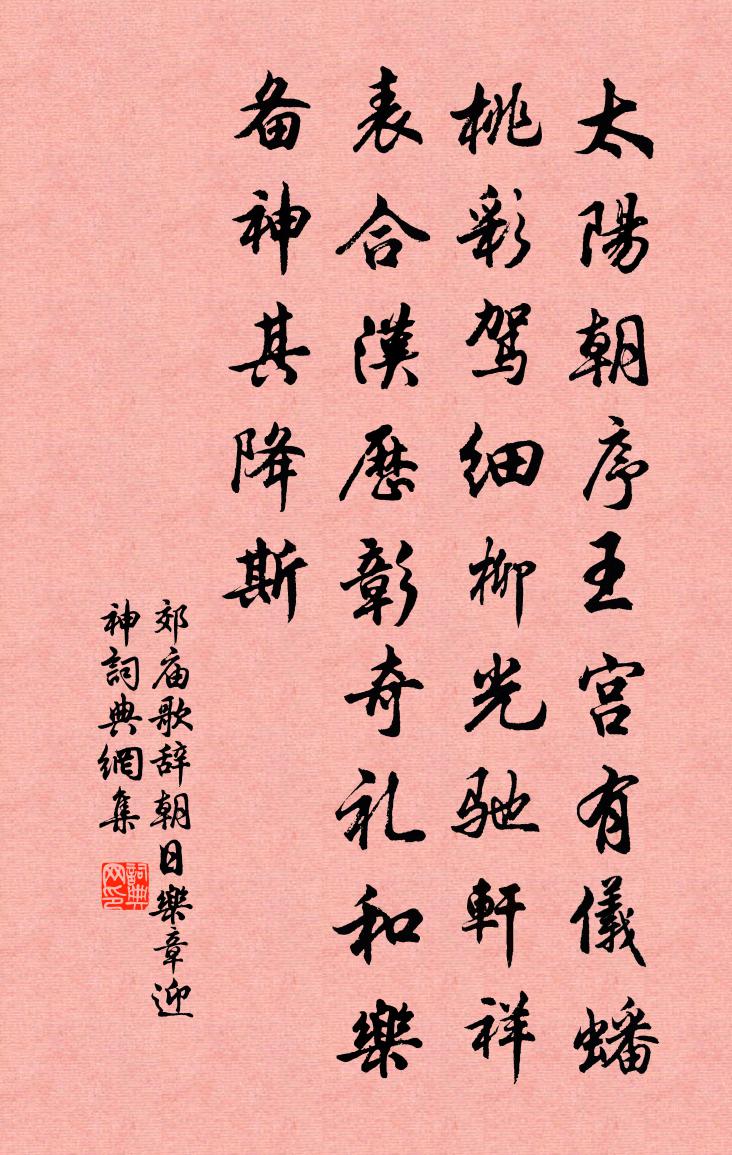 太陽朝序王宫有儀蟠
桃彩驾细柳光驰軒祥
表合漢歷彰奇礼和樂
备神其降斯
郊庙歌辞朝日樂章迎
神詞典網集
詞典网印